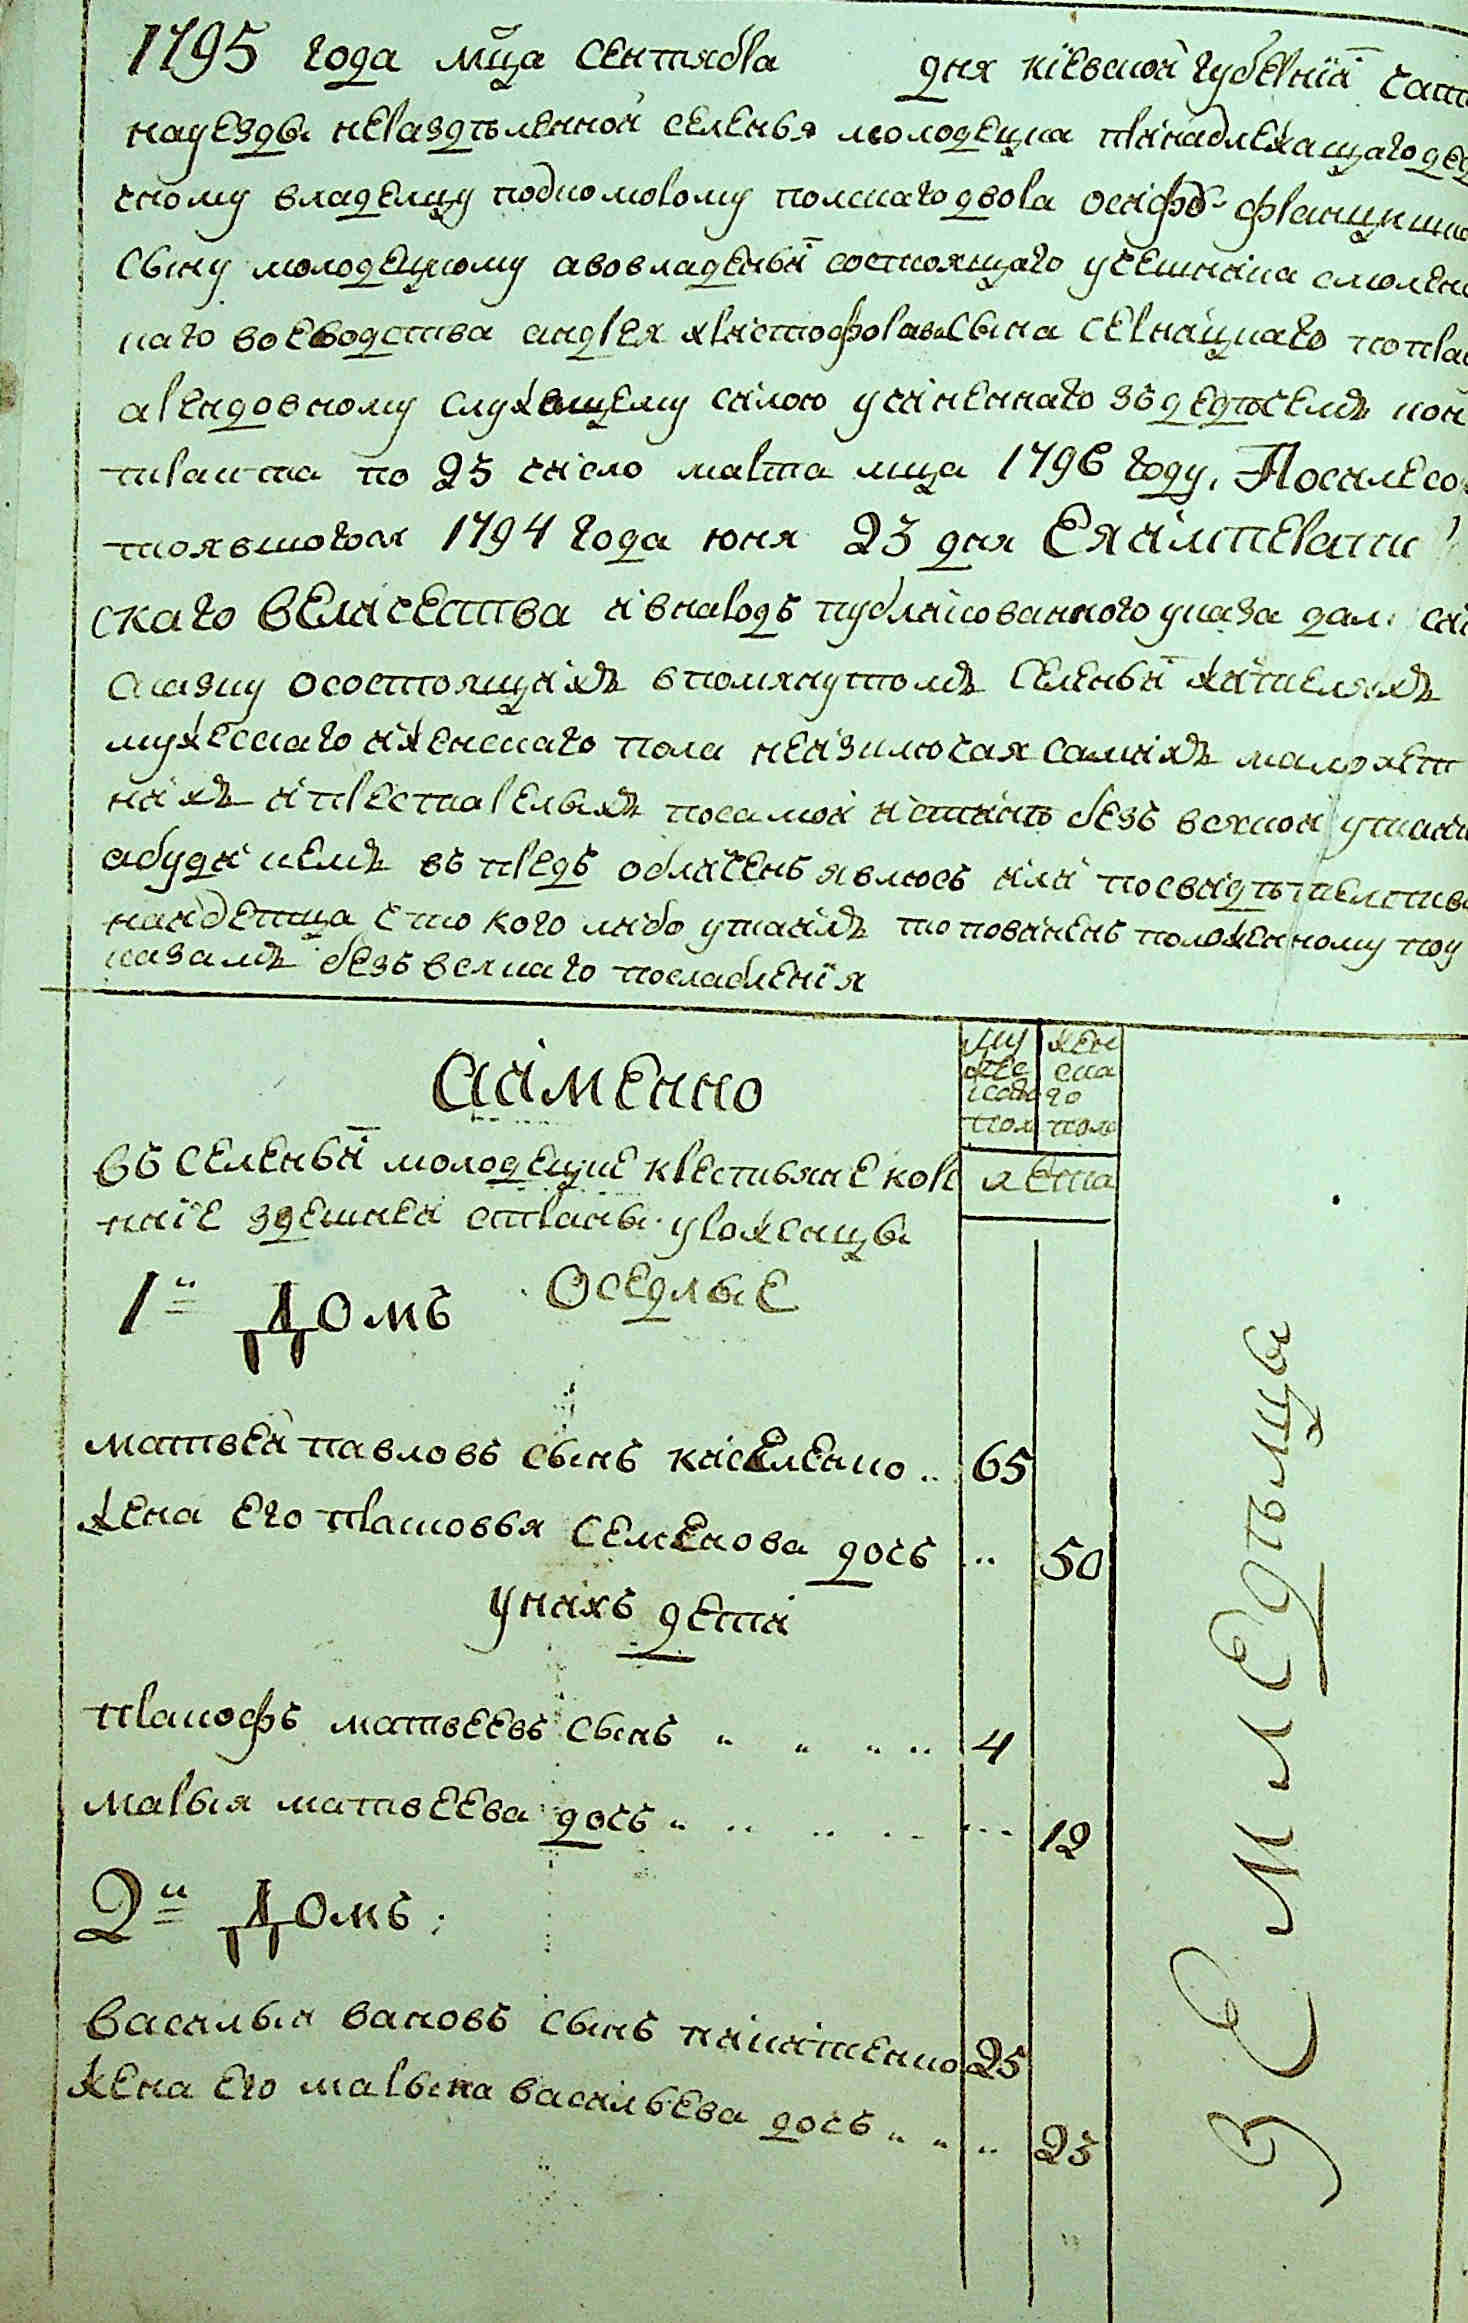 1795 года мца сентября дня кїевской губернїи
науезды неразделенной селенья молодецка принадлежащаго
скому владелцу подкоморому полскаго двора осифу францишко
сыну молодецкому авовладеньи состоящаго учешника смолен
каго воеводства андрея христофорава сына серницкаго попра
арендовному служащему силою учиненнаго зъ дедычемъ кон
тракта по 25 число марта мца 1796 году, Посиле со
тоявшогося 1794 года юня 23 дня Ея император
скаго величества ивнародъ публикованного указа дал сию
сказку осостоящихъ впомянутомъ селеньи жителяхъ
мужескаго иженскаго пола неизключая самихъ малолет
нихъ ипрестарелыхъ посамой истинъ безъ всякой утайки
абуди кемъ въпредь обличенъ явлюсь или посвидетелству
найдетца что кого либо утаилъ то повиненъ положенному поу
казамъ безъ всякаго послабленїя
аимЕнно
муже скаго пол
женскаго пола
лета
въ селеньи молодецке крестьяне корЕ
нные здешней страны уроженцы
1й Домъ Оседлые
матвей павловъ сынъ киселенко .. 65
жена его прасковья семенова дочь .. 50
унихъ дети
пракофъ матвеевъ сынъ 4
марья матвеева дочь 12
2й Домъ
василый вановъ сынъ никитенко 25
жена его марына васильева дочь 23
ЗЕМЛЕДЪЛЦЫ